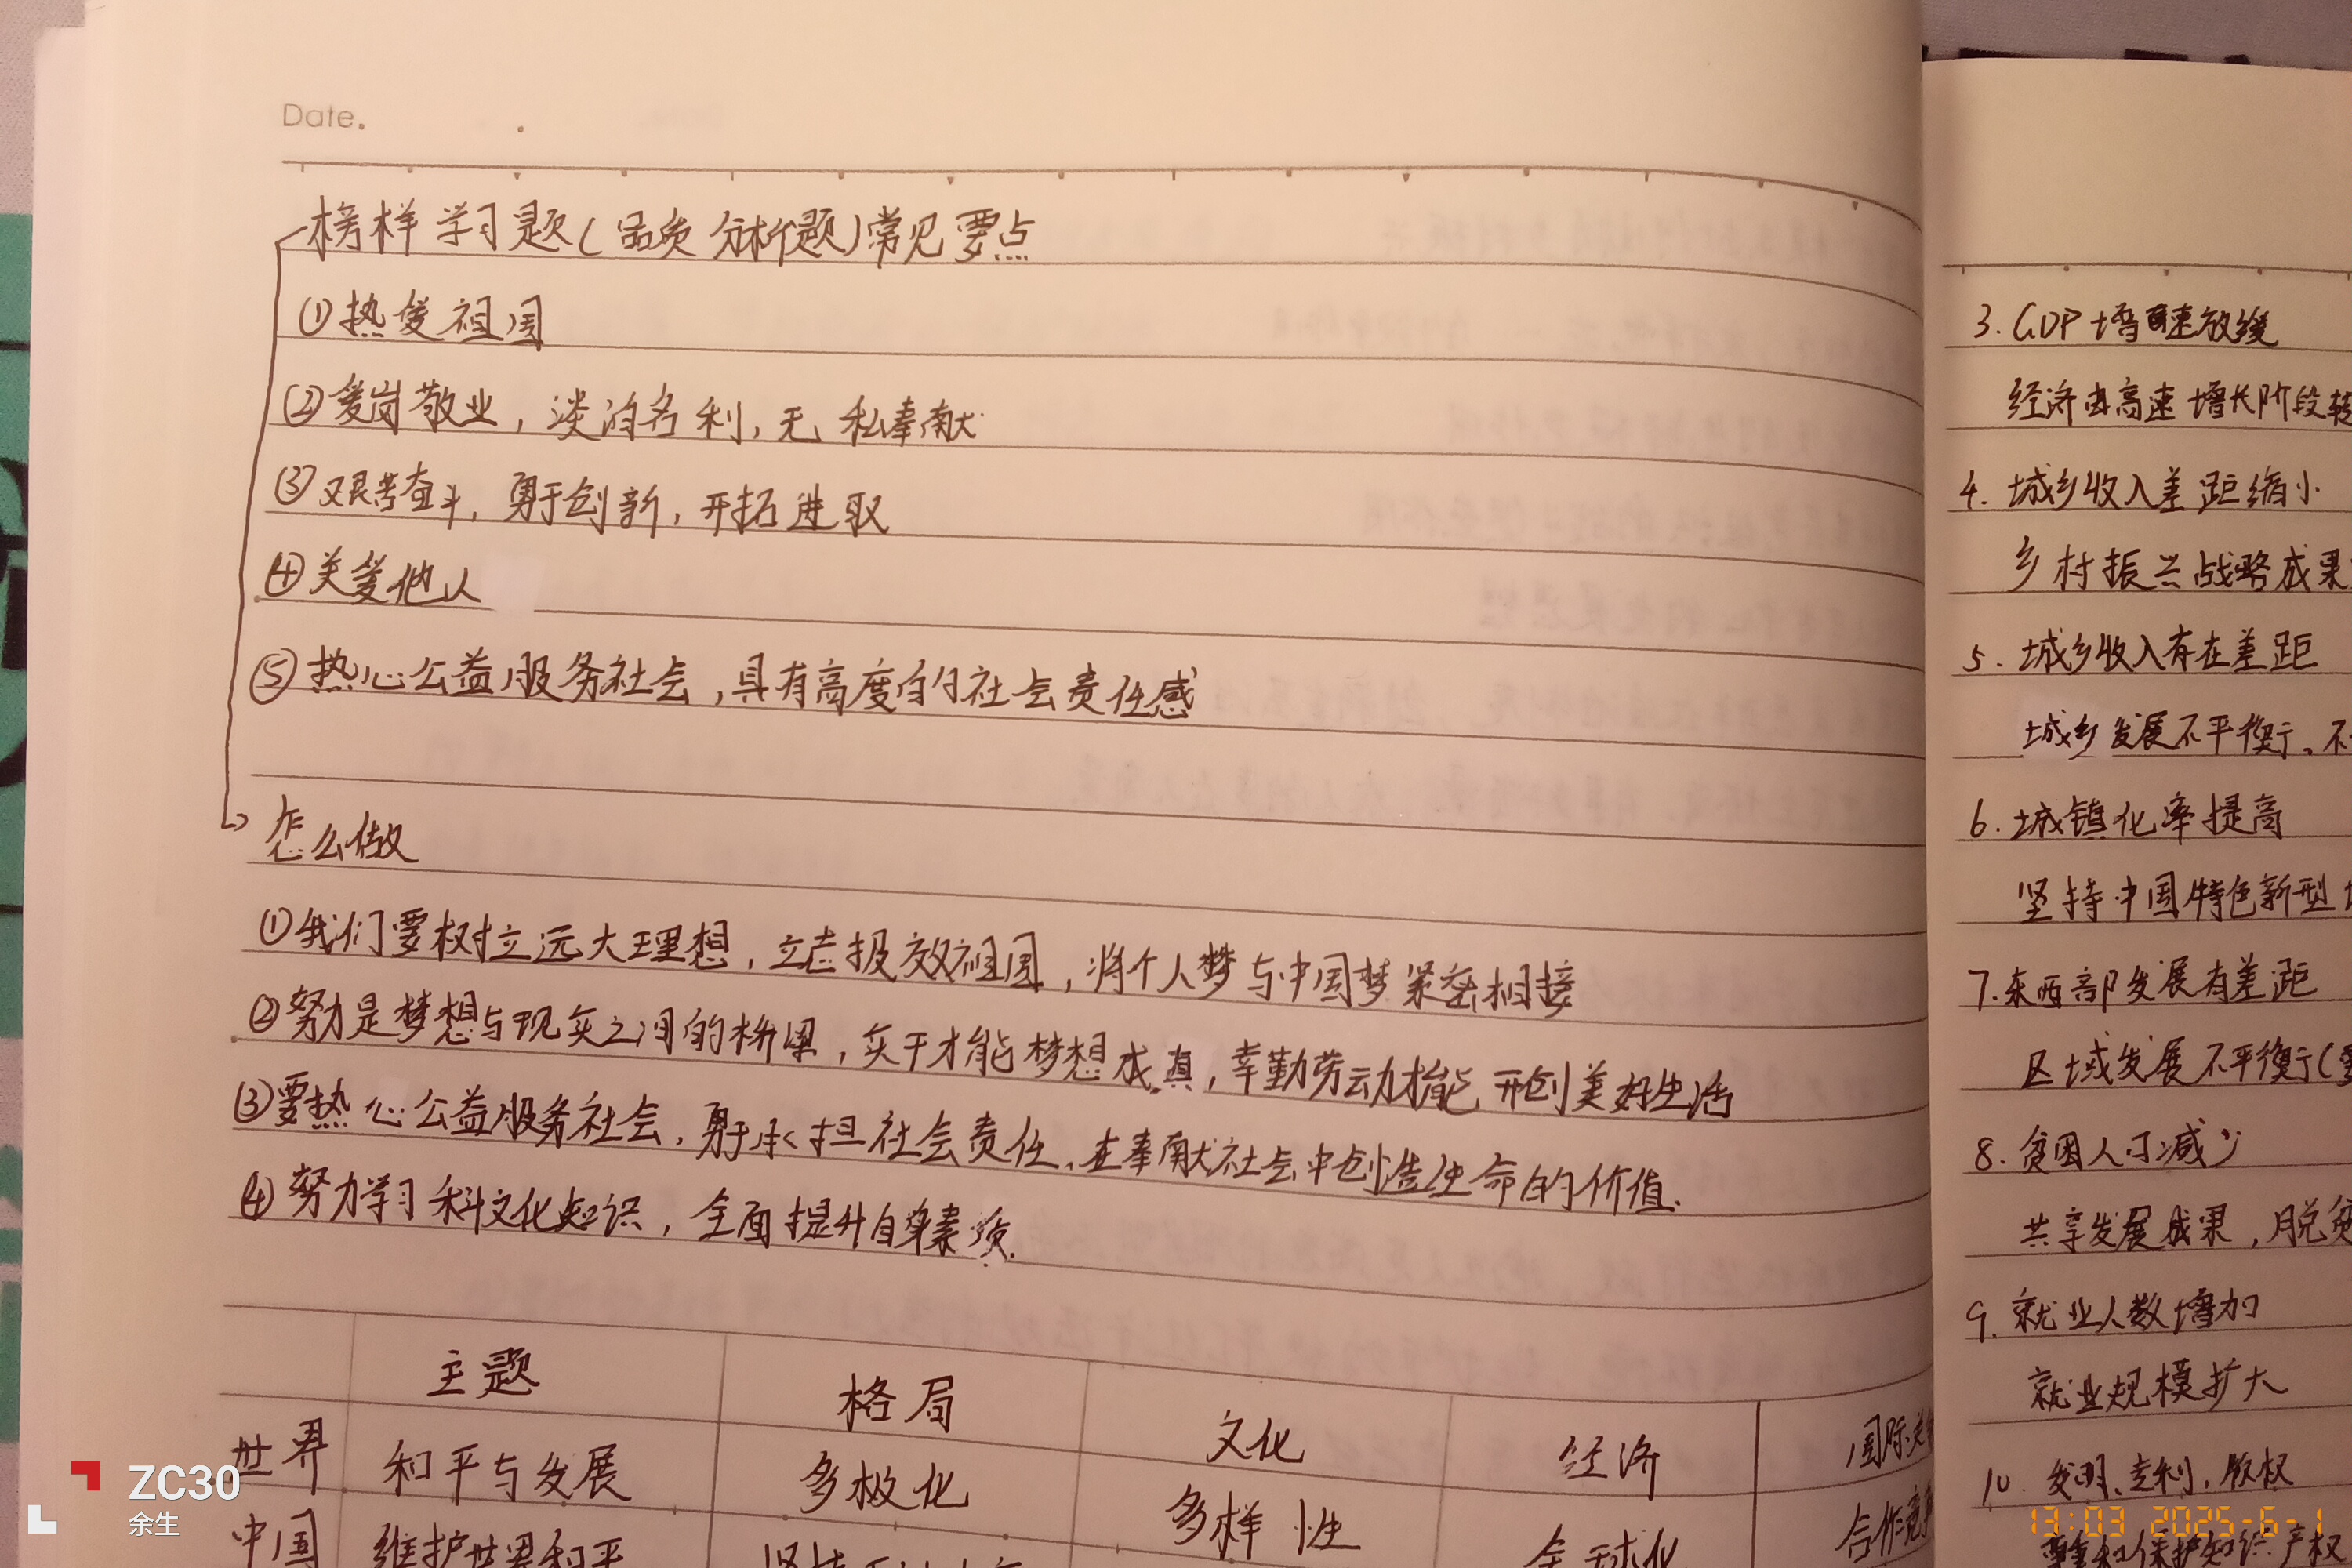 Date.
榜样学习题(品质分析题)常见要点
①热爱祖国
②爱岗敬业,淡泊名利,无私奉献
③艰苦奋斗,勇于创新,开拓进取
④关爱他人
⑤热心公益服务社会,具有高度的社会责任感
怎么做
①我们要树立远大理想,立志报效祖国,将个人梦与中国梦紧密相接
②努力是梦想与现实之间的桥梁,实干才能梦想成真,辛勤劳动才能开创美好生活
③要热心公益服务社会,勇于承担社会责任,在奉献社会中创造生命的价值.
④努力学习科文化知识,全面提升自身素质.
主题 格局 文化 经济 国际关
世界 和平与发展 多极化 多样性 全球化 合作竞
中国 维护世界和平
3. GDP增速放缓
经济由高速增长阶段转
4. 城乡收入差距缩小
乡村振兴战略成果
5. 城乡收入存在差距
城乡发展不平衡、不
6. 城镇化率提高
坚持中国特色新型
7. 东西部发展有差距
区域发展不平衡(
8. 贫困人口减少
共享发展成果,脱贫
9. 就业人数增加
就业规模扩大
10. 发明、专利、版权
尊重和保护知识产权
ZC30
余生
13:03 2025-6-1